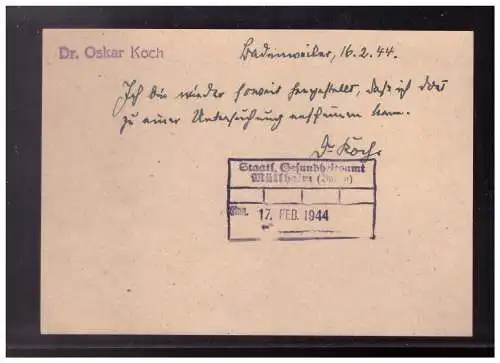 Dr. Oskar Koch
Badenweiler, 16.2.44.
Ich bin wieder soweit hergestellt, dass ich dort
zu einer Untersuchung kann.
Dr Koch.
Staatl. Gesundheitsamt
Müllheim (Baden)
17. FEB. 1944